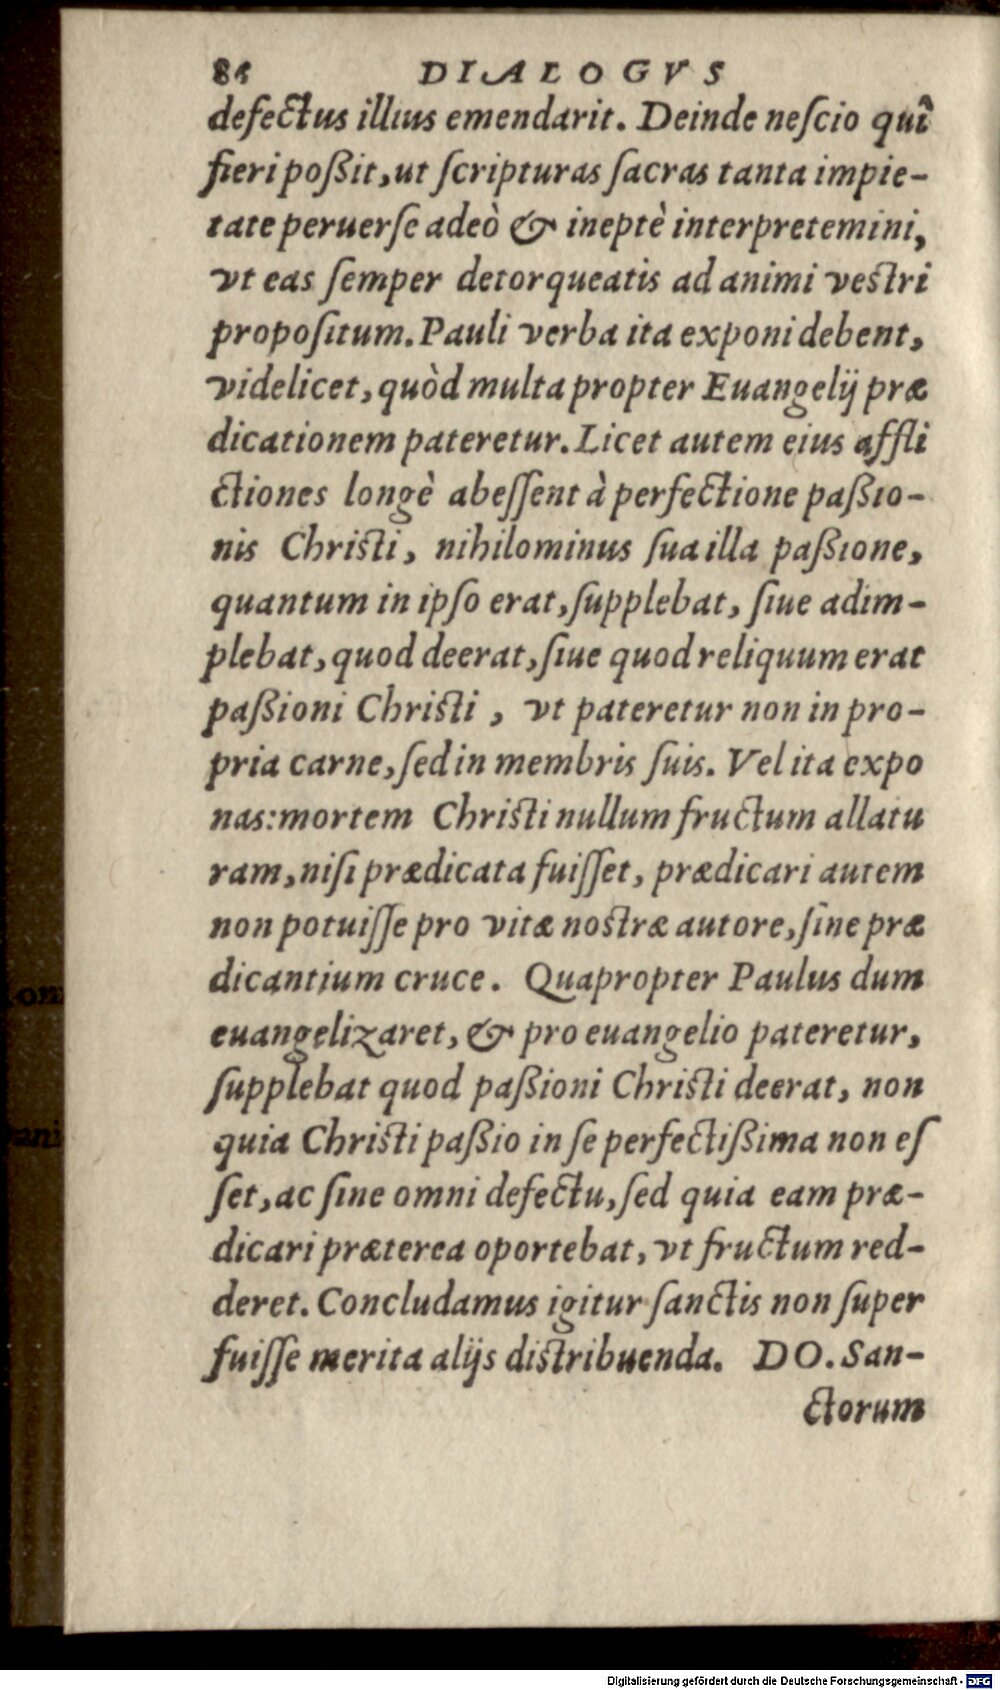 86 DIALOGVS
defectus illius emendarit. Deinde neſcio quî
fieri poßit, ut ſcripturas ſacras tanta impie-
tate peruerſe adeò & ineptè interpretemini,
vt eas ſemper detorqueatis ad animi veſtri
propoſitum. Pauli verba ita exponi debent,
videlicet, quòd multa propter Euangelij præ
dicationem pateretur. Licet autem eius affli
ctiones longè abeſſent à perfectione paßio-
nis Chriſti, nihilominus ſua illa paßione,
quantum in ipſo erat, ſupplebat, ſiue adim-
plebat, quod deerat, ſiue quod reliquum erat
paßioni Chriſti, vt pateretur non in pro-
pria carne, ſed in membris ſuis. Vel ita expo
nas: mortem Chriſti nullum fructum allatu
ram, niſi prædicata fuiſſet, prædicari autem
non potuiſſe pro vitæ noſtræ autore, ſine præ
dicantium cruce. Quapropter Paulus dum
euangelizaret, & pro euangelio pateretur,
ſupplebat quod paßioni Chriſti deerat, non
quia Chriſti paßio in ſe perfectißima non eſ
ſet, ac ſine omni defectu, ſed quia eam præ-
dicari præterea oportebat, vt fructum red-
deret. Concludamus igitur ſanctis non ſuper
fuiſſe merita alijs distribuenda. DO. San-
ctorum
Digitalisierung gefördert durch die Deutsche Forschungsgemeinschaft - DFG